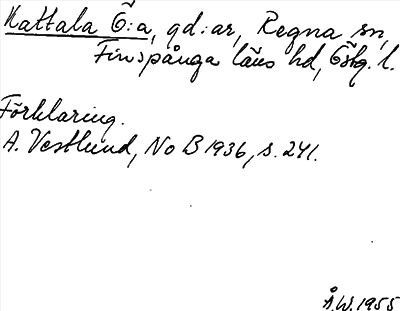 Kattala Ö:a, gd:ar, Regna sn,
Finspånga läns hd, Östg. l.
Förklaring.
A. Vestlund, No B 1936, s. 241.
Å.W. 1955